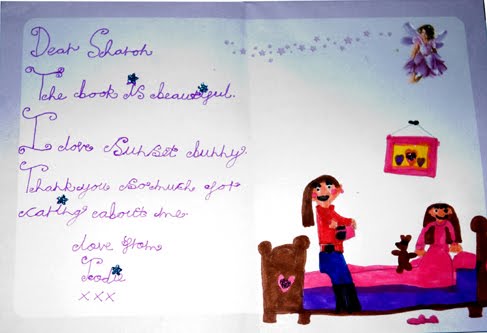 Dear Sharon
The book is beautiful.
I love Sunset bunny.
Thank you so much for
caring about me
love from
xxx